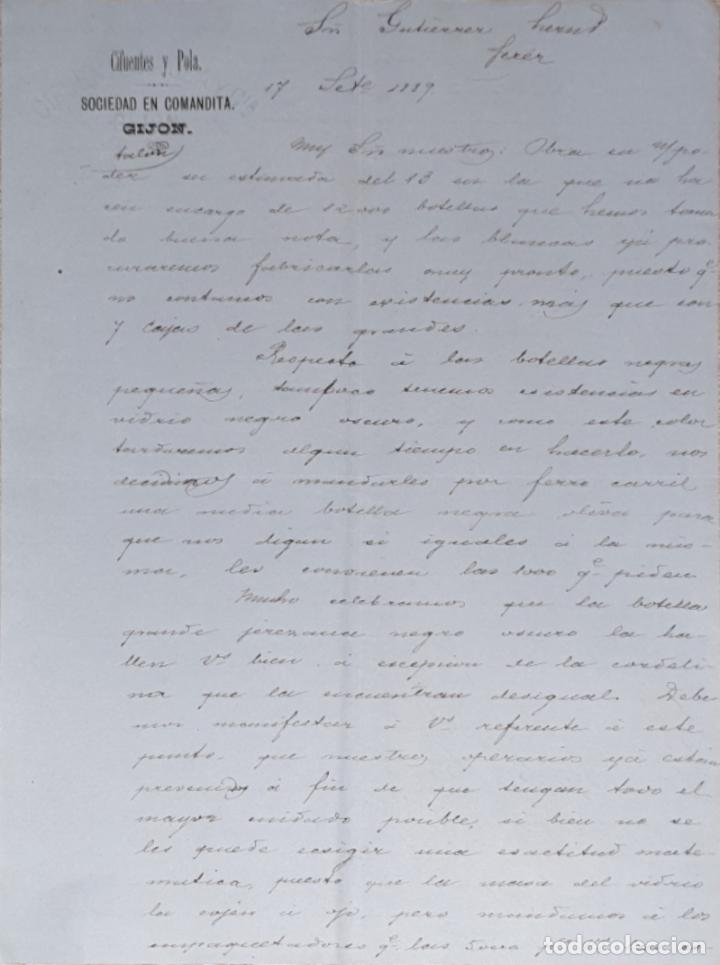 Sñ Gutiérrez herms
Jerez
Cifuentes y Pola.
SOCIEDAD EN COMANDITA.
GIJON.
17 Sete 1889
talón
Muy Sñ nuestros: Obra en n/ po-
der su estimada del 13 en la que nos ha
cen encargo de 12000 botellas que hemos toma
do buena nota, y las blancas yá pro-
curaremos fabricarlas muy pronto, puesto qe
no contamos con existencias más que con
7 cajas de las grandes.
Respecto á las botellas negras
pequeñas, tampoco tenemos existencias en
vidrio negro oscuro, y como este color
tardaremos algun tiempo en hacerlo, nos
decidimos á mandarles por ferro carril
una media botella negra oliva para
que nos digan si iguales á la mis-
ma, les convienen las 1000 qe piden
Mucho celebramos que la botella
grande jerezana negro oscuro la ha-
llen Vs bien á escepcion de la cordeli
na que la encuentran desigual. Debe
mos manifestar á Vs referente á este
punto, que nuestros operarios yá están
prevenidos á fin de que tengan todo el
mayor cuidado posible, si bien no se
les puede ecsigir una esactitud mate-
matica, puesto que la masa del vidrio
la cojen á ojo, pero mandamos á los
empaquetadores qe las
todocoleccion